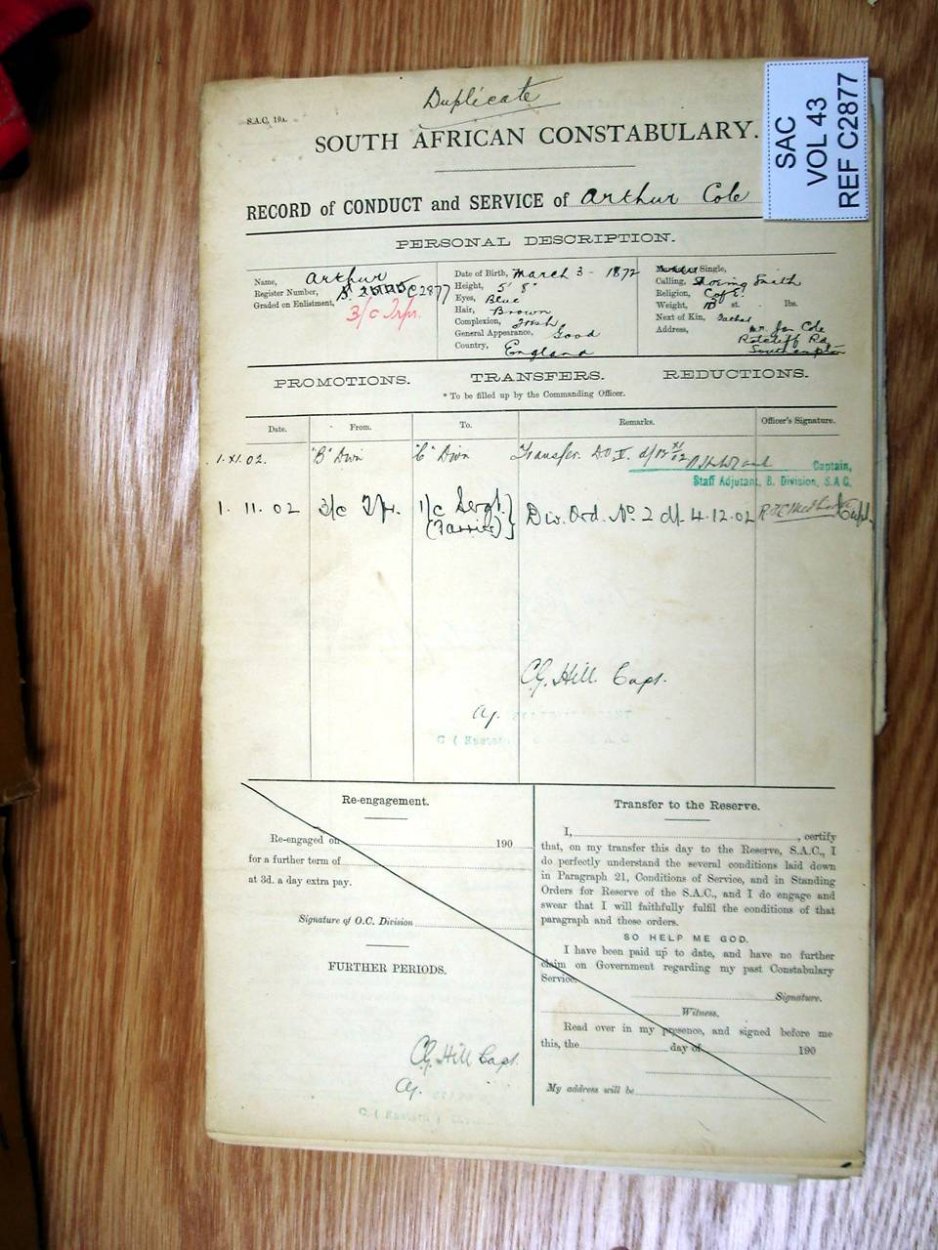 Duplicate
S.A.C. 19A.
SOUTH AFRICAN CONSTABULARY.
SAC
VOL 43
REF C2877
RECORD of CONDUCT and SERVICE of Arthur Cole
PERSONAL DESCRIPTION.
Name, Arthur
Register Number, C2877
Graded on Enlistment, 3/c Tpr.
Date of Birth, March 3 - 1872
Height, 5' 8"
Eyes, Blue
Hair, Brown
Complexion, Fresh
General Appearance, Good
Country, England
Single,
Calling, Shoeing Smith
Religion, C of E.
Weight, st. lbs.
Next of Kin, Father
Address, Mr. Cole
Rd
Southampton
PROMOTIONS. TRANSFERS. REDUCTIONS.
* To be filled up by the Commanding Officer.
Date. From. To. Remarks. Officer's Signature.
1.XI.02. "B" Divn "C" Divn Transfer. D.O.
Captain,
Staff Adjutant, B. Division, S.A.C.
1.11.02 3/c Tpr. 1/c Sergt. Div. Ord. No. 2 d/. 4.12.02 Capt.
(Farrier)
Hill. Capt.
Re-engagement.
Re-engaged on 190
for a further term of
at 3d. a day extra pay.
Signature of O.C. Division
FURTHER PERIODS.
Hill Capt.
Transfer to the Reserve.
I, , certify
that, on my transfer this day to the Reserve, S.A.C., I
do perfectly understand the several conditions laid down
in Paragraph 21, Conditions of Service, and in Standing
Orders for Reserve of the S.A.C., and I do engage and
swear that I will faithfully fulfil the conditions of that
paragraph and these orders.
SO HELP ME GOD.
I have been paid up to date, and have no further
claim on Government regarding my past Constabulary
Service.
Signature.
Witness.
Read over in my presence, and signed before me
this, the day of 190
My address will be